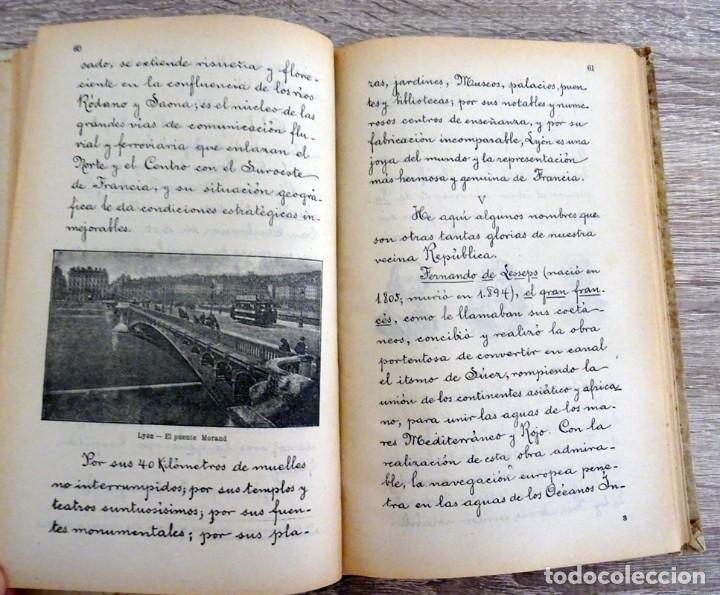 60
sado, se extiende risueña y flore-
ciente en la confluencia de los ríos
Ródano y Saona; es el núcleo de las
grandes vías de comunicación flu-
vial y ferroviaria que enlazan el
Norte y el Centro con el Suroeste
de Francia, y su situación geográ-
fica le da condiciones estratégicas in-
mejorables.
Lyon — El puente Morand
Por sus 40 Kilómetros de muelles
no interrumpidos; por sus templos y
teatros suntuosísimos; por sus fuen-
tes monumentales; por sus pla-
61
zas, jardines, Museos, palacios, puen-
tes y bibliotecas; por sus notables y nume-
rosos centros de enseñanza, y por su
fabricación incomparable, Lyón es una
joya del mundo y la representación
más hermosa y genuina de Francia.
V
He aquí algunos nombres que
son otras tantas glorias de nuestra
vecina República.
Fernando de Lesseps (nació en
1805; murió en 1894), el gran fran-
cés, como le llamaban sus coetá-
neos, concibió y realizó la obra
portentosa de convertir en canal
el itsmo de Súez, rompiendo la
unión de los continentes asiático y africa-
no, para unir las aguas de los ma-
res Mediterráneo y Rojo. Con la
realización de esta obra admira-
ble, la navegación europea pene-
tra en las aguas de los Océanos In-
3
todocoleccion